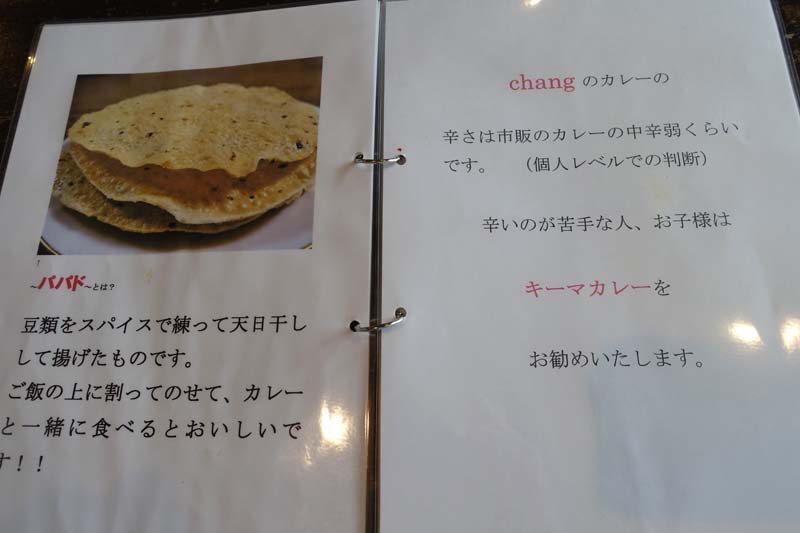 ～パパド～とは？
豆類をスパイスで練って天日干し
して揚げたものです。
ご飯の上に割ってのせて、カレー
と一緒に食べるとおいしいで
す！！
chang のカレーの
辛さは市販のカレーの中辛弱くらい
です。　（個人レベルでの判断）
辛いのが苦手な人、お子様は
キーマカレーを
お勧めいたします。